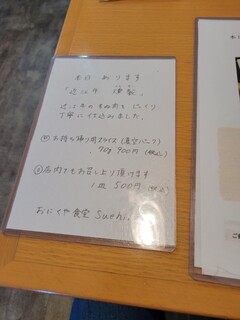 本日 あります
「近江牛 燻製」
近江牛のもも肉をじっくり
丁寧に仕込みました。
お持ち帰り用スライス(真空パック)
70g 900円(税込)
店内でもお召し上り頂けます
1皿 500円(税込)
おにくや食堂 Suehi